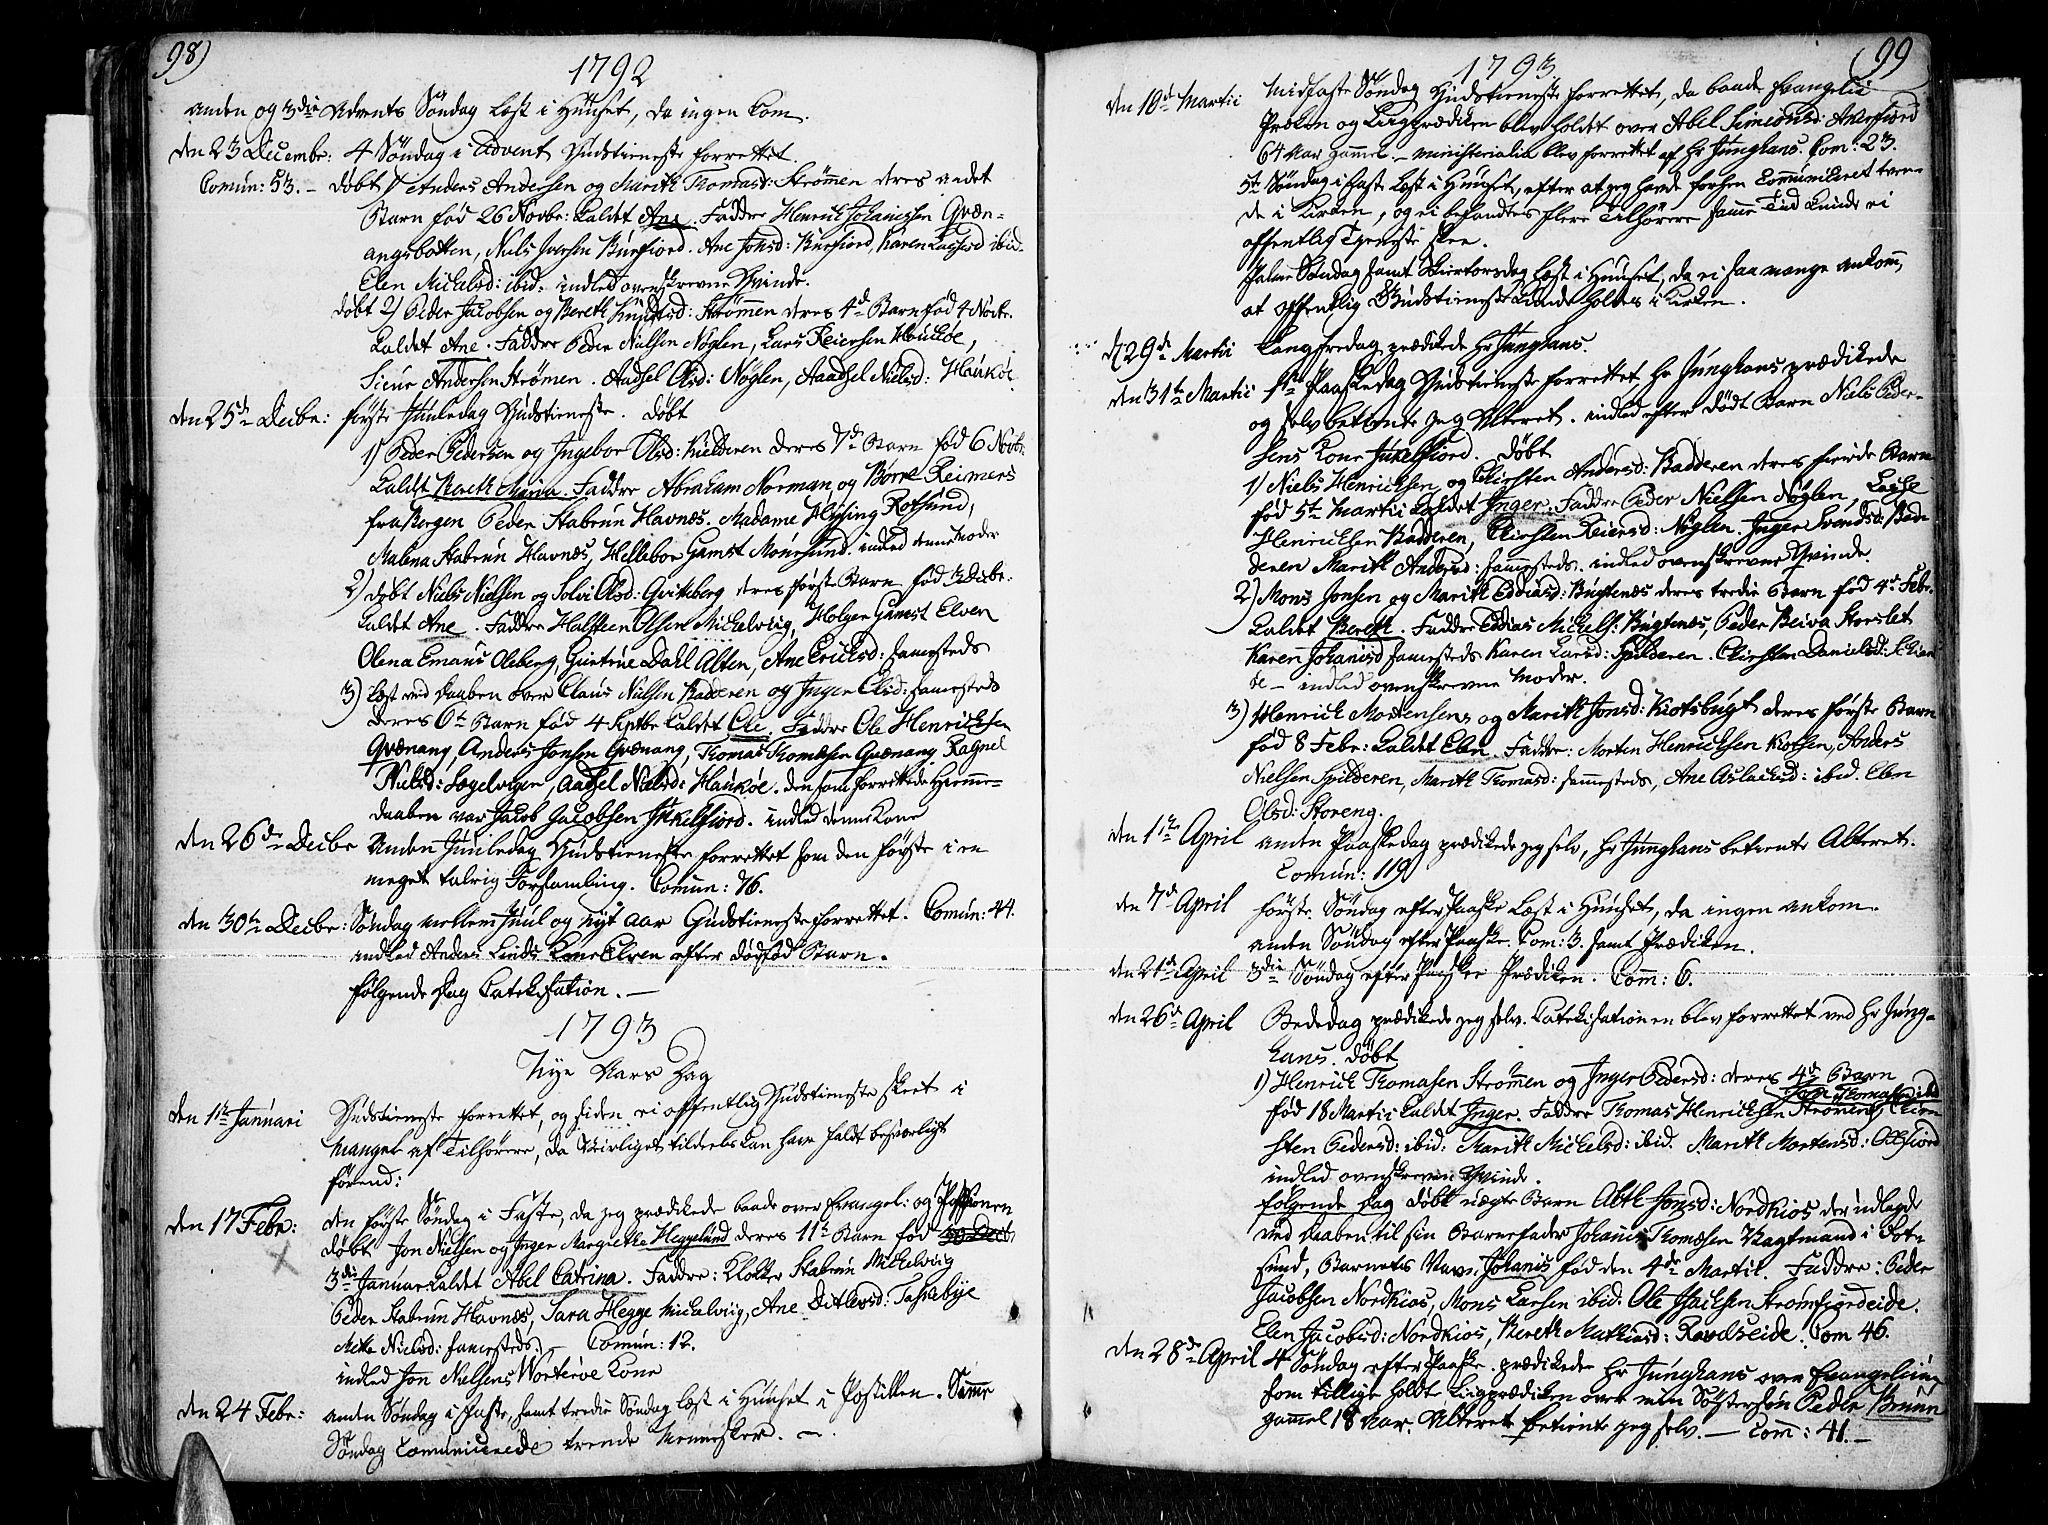 98)
1792
anden og 3die Advents Søndag læst i Huuset, da ingen kom.
den 23 Decembr: 4 Søndag i Advent Gudstieneste forrettet.
Comun: 53. – døbt 1/ Anders Andersen og Marith Thomasd: Strømmen deres andet
Barn fød 26 Novbr: kaldet Ane. Faddre Henrich Johanssen Qvæn-
angsbotten, Niels Iversen Burfiord. Ane Jonsd: Burfiord, Karen ibid.
Elen Michelsd: ibid: indled ovenskrevne Qvinde.
døbt 2) Peder Jacobsen og Bereth Knudsd: Strømmen deres 4d Barn fød 4 Novbr.
kaldet Ane. Faddre Peder Nielsen Nøglen, Lars Reiersen Haukøe,
Siver Andersen Strømen. Aadsel Olsd: Nøglen, Aadsel Nielsd: Haukøe.
den 25de Decbr: første Juuledag Gudstieneste. døbt
1) Peder Pedersen og Ingebor Olsd: Kielderen deres 7de Barn fød 6 Novbr:
kaldet Maria. Faddre Abraham Norman og Børre Reimers
fra Bergen Peder Stabrun Havnæs. Madame Hysing Rotsund,
Malena Stabrun Havnæs, Hellebor Gamst Moursund. indled denne Moder
2) døbt Niels Nielsen og Solvi Olsd: Qvitteberg deres første Barn fød 3 Decbr:
kaldet Ane. Faddre Halsteen Olsen Michelvig, Holger Gamst Elven
Olena Emaus Oleberg, Giertrue Dahl Alten, Ane Ericksd: sammesteds
3) Læst ved daaben over Claus Nielsen Badderen og Inger Olsd: sammesteds
deres 6te Barn fød 4 Septbr kaldet Ole. Faddre Ole Henrichsen
Qvænang, Anders Jonsen Qvænang, Thomas Thomæsen Qvænang, Ragnel
Nielsd: Segelvigen, Aadsel Nielsd: Haukøe. den som forrettede Hiemme-
daaben var Jacob Jacobsen Jøkelfiord. indled denne Kone
den 26de Decbr Anden Juuledag Gudstieneste forrettet som den første i en
meget talrig Forsamling. Comun: 76.
den 30te Decbr: Søndag mellem Juul og nyt aar Gudstieneste forrettet. Comun: 44.
indled Anders Linds Kone Elven efter dødfød Barn.
følgende dag Catekisation. —
1793
Nye Aars Dag
den 1te Januari Gudstieneste forrettet, og siden ei offentlig Gudstieneste skeet i
mangel af Tilhørere, da Veirliget tildeels kan have faldt besværligt
førend:
den 17 Febr: den første Søndag i Faste, da jeg prædikede baade over Evangel: og Passionen
døbt Jon Nielsen og Inger Margrethe Heggelund deres 11te Barn fød
3die Januar kaldet Abel Catrina. Faddre: Klokker Stabrun Michelvig
Peder Stabrun Havnæs, Sara Hegge Michelvig, Ane Ditlevsd: Taskebye
Mette Nielsd: sammesteds. – Comun: 12.
indled Jon Nielsens Kone
den 24 Febr: anden Søndag i Faste, samt tredie Søndag læst i Huuset i Postillen. Samme
Søndag communicerede trende Mennisker. —
99
1793
den 10de Martii Midfaste Søndag Gudstieneste forrettet, da baade Evangelii
Præken og Liigprædiken blev holdet over Abel Simeonsd:
64 Aar gammel. – ministerialia blev forrettet af Hr Junghans. Com: 23.
5te Søndag i faste læst i Huuset, efter at jeg havde forhen Communiceret tren-
de i Kirken, og ei befandtes flere Tilhørere samme Tid kunde ei
offentlig Tieneste skee.
Palme Søndag samt Skiertorsdag læst i Huuset, da ei saa mange ankom,
at offentlig Gudstieneste kunde holdes i Kirken.
d 29de Martii Langfredag prædikede Hr Junghans.
den 31te Martii 1ste Paaskedag Gudstieneste forrettet, Hr Junghans prædikede
og selv betiente jeg Alteret. indled efter dødt Barn Niels Peder-
sens Kone Jøkelfiord. døbt
1) Niels Henrichsen og Kirsten Andersd: Badderen deres fierde Barn
fød 5te Martii kaldet Inger. Faddre Peder Nielsen Nøglen,
Henrichsen Badderen, Kirsten Reiersd: Nøglen. Inger Svendsd: Bad-
deren Marith Andersd: sammesteds. indled ovenskrevne Qvinde.
2) Mons Jonsen og Marith Eddiasd: Bugtenæs deres tredie Barn fød 4de Febr:
kaldet Bereth. Faddre Eddias Michels: Bugtenæs, Peder Beiva Storslet
Karen Johanisd sammesteds Karen Larsd: Spilderen. Kirsten Danielsd:
– indled ovenskrevne Moder.
3) Henrich Mortensen og Marith Jonsd: Kiotsbugt deres første Barn
fød 8 Febr: kaldet Elen. Faddre: Morten Henrichsen Kotsen, Anders
Nielsen Spilderen, Marith Thomasd: sammesteds, Ane Aslacksd: ibid. Elen
Olsd: Storeng.
den 1te April anden Paaskedag prædikede jeg selv, Hr Junghans betiente Alteret.
Comun: 119
den 7de April første Søndag efter Paaske læst i Huuset, da ingen ankom.
anden Søndag efter Paaske. Com: 3. samt Prædiken.
den 21de April 3die Søndag efter Paaske Prædiken. Com: 6.
den 26de April Bededag prædikede jeg selv. Catekisationen blev forrettet ved Hr Jung-
hans. døbt
1) Henrich Thomasen Strømen og Inger Pedersd: deres 4de Barn
fød 18 Martii kaldet Inger. Faddre Thomas Henrichsen Strømen, Thomasen ibid Kier-
sten Pedersd: ibid: Marith Michelsd: ibid. Marith Mortensd: Oxfiord
indled ovenskrevne Qvinde.
følgende dag døbt uægte Barn Abel Jonsd: Nordkios der udlagde
ved daaben til sin Barnefader Johanis Thomæsen Vagtmand i Rot-
sund, Barnets Navn Johanis fød den 4de Martii. Faddre: Peder
Jacobsen Nordkios, Mons Larsen ibid. Ole Isachsen Strømfiordeide.
Elen Jacobsd: Nordkios, Bereth Mathiasd: Ravelseide. Com 46.
den 28de April 4 Søndag efter Paaske. prædikede Hr Junghans over Evangelium
som tillige holdt Liigprædiken over min Søstersøn Peder Bruun
gammel 18 Aar. Alteret betiente jeg selv. — Com: 41. –